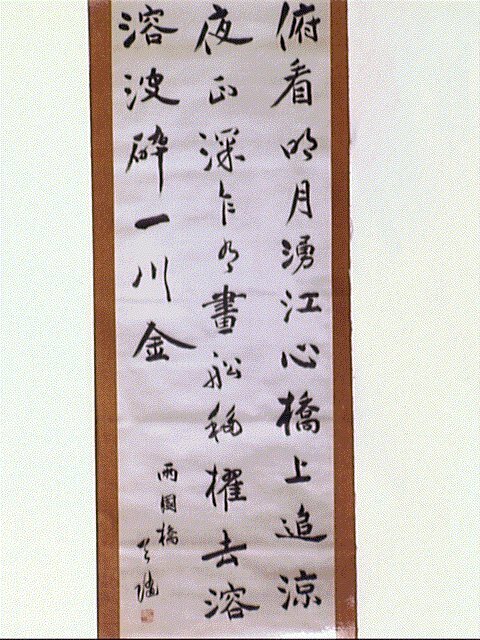 俯看明月湧江心橋上追涼
夜正深乍有畫船移櫂去溶
溶波碎一川金
兩國橋